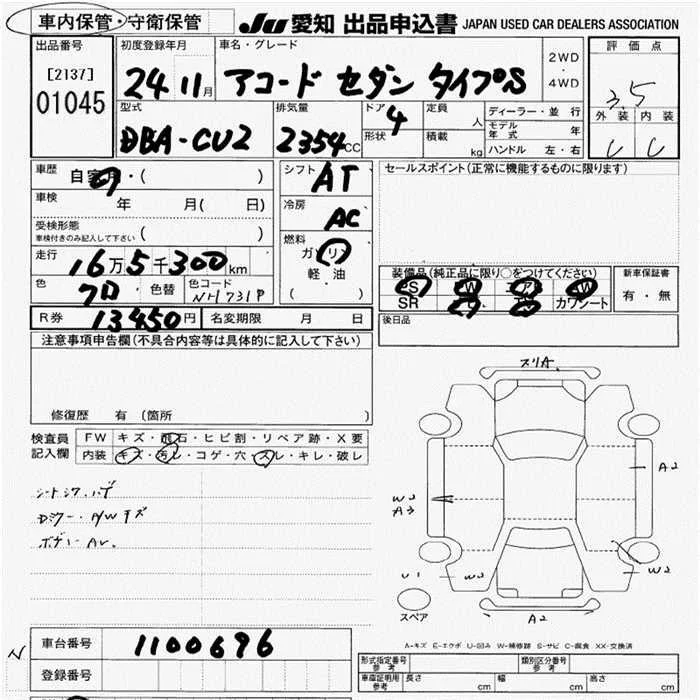 車内保管・守衛保管
JU 愛知 出品申込書 JAPAN USED CAR DEALERS ASSOCIATION
出品番号
[2137]
01045
初度登録年月
24 11月
車名・グレード
アコード セダン タイプS
2WD
・
4WD
評価点
3.5
外装 内装
型式
DBA-CU2
排気量
2354cc
ドア
4
形状
定員
人
積載
kg
ディーラー・並行
モデル年式 年
ハンドル 左・右
車歴
自家用・( )
車検
年 月( 日)
受検形態
車検付きのみ記入して下さい ( )
走行
16万5千300km
色
クロ
色替
色コード
NH731P
シフト
AT
冷房
AC
燃料
ガソリン
・
軽油
( )
セールスポイント(正常に機能するものに限ります)
装備品(純正品に限り○をつけてください)
PS PW エアB AW
SR カワシート
新車保証書
有・無
後日品
R券 13450円
名変期限 月 日
注意事項申告欄(不具合内容等は具体的に記入して下さい)
修復歴 有 (箇所 )
検査員記入欄
FW キズ・飛石・ヒビ割・リペア跡・X要
内装 キズ・汚レ・コゲ・穴・スレ・キレ・破レ
ボデー
スリA.
A2
W2
A3
U1
W2
W2
A2
スペア
A-キズ E-エクボ U-凹み W-補修跡 S-サビ C-腐食 XX-交換済
N
車台番号
1100696
登録番号
形式指定番号
参考
類別区分番号
参考
車庫証明用
参考
長さ cm
幅 cm
高さ cm